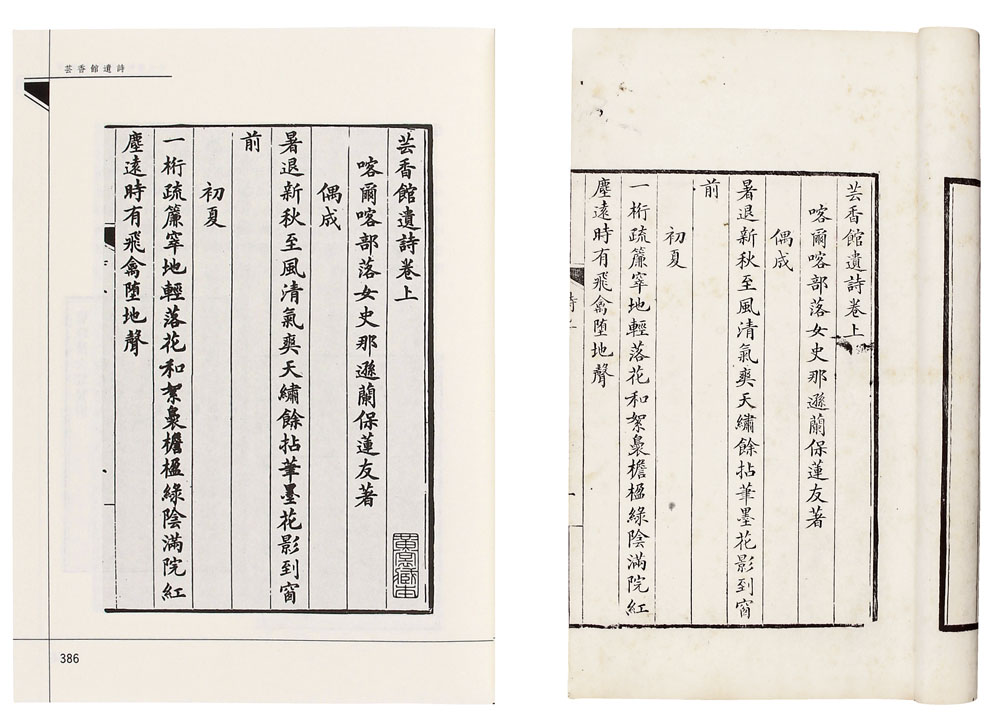 芸香館遺詩
芸香館遺詩卷上
喀爾喀部落女史那遜蘭保蓮友著
偶成
暑退新秋至風清氣爽天繡餘拈筆墨花影到窗
前
初夏
一桁疏簾窣地輕落花和絮裊檐楹綠陰滿院紅
塵遠時有飛禽墮地聲
386
芸香館遺詩卷上
喀爾喀部落女史那遜蘭保蓮友著
偶成
暑退新秋至風清氣爽天繡餘拈筆墨花影到窗
前
初夏
一桁疏簾窣地輕落花和絮裊檐楹綠陰滿院紅
塵遠時有飛禽墮地聲